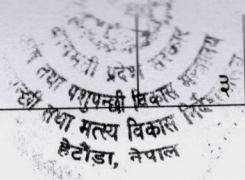 बागमती प्रदेश सरकार
तथा पशुपन्छी विकास मन्त्रालय
पन्छी तथा मत्स्य विकास
हेटौंडा, नेपाल